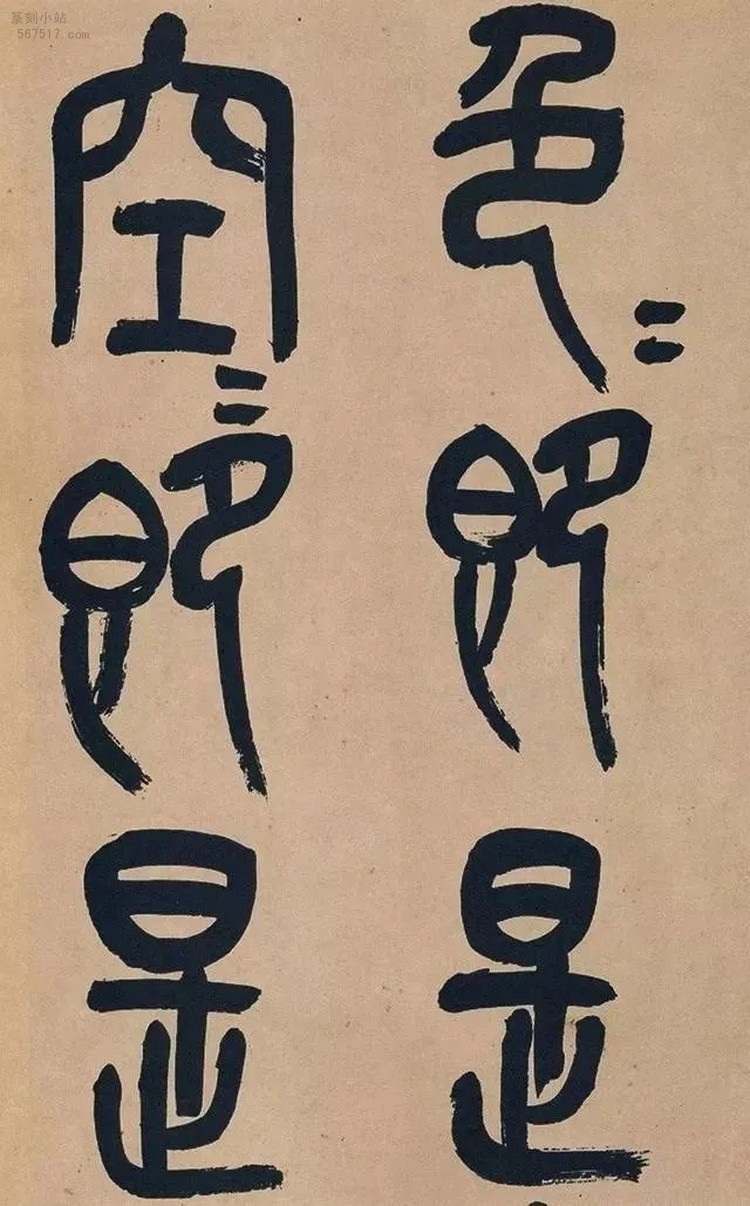 色〻即是
空〻即是
篆刻小站
567517.com